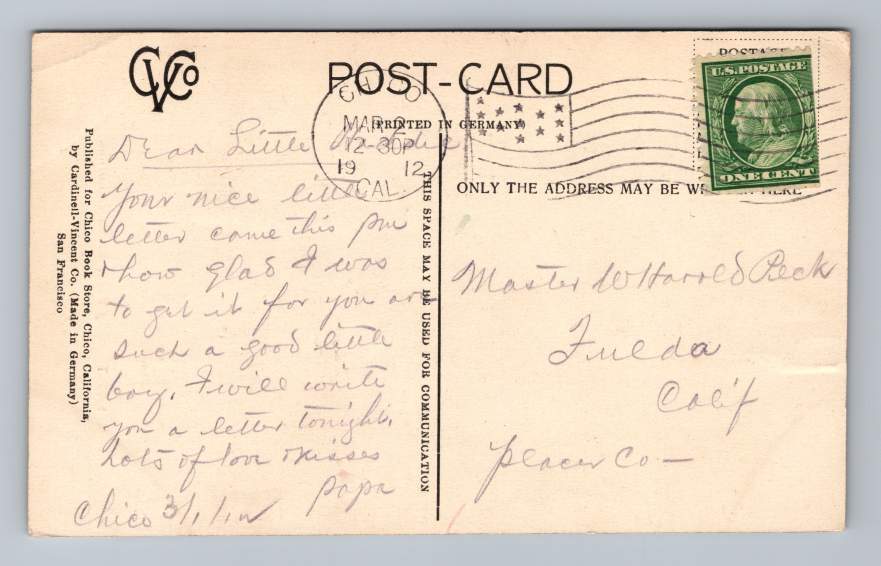 CVCo
POST-CARD
PRINTED IN GERMANY
POSTAGE
U.S. POSTAGE
ONE CENT
CHICO
MAR 2
12-30P
19 12
CAL.
ONLY THE ADDRESS MAY BE WRITTEN HERE
THIS SPACE MAY BE USED FOR COMMUNICATION
Published for Chico Book Store, Chico, California,
by Cardinell-Vincent Co. (Made in Germany)
San Francisco
Dear Little
Your nice little
letter came this pm
& how glad I was
to get it for you are
such a good little
boy. I will write
you a letter tonight.
Lots of love & kisses
Papa
Chico 3/1/12
Master W Harold Peck
Fulda
Calif
Placer Co—